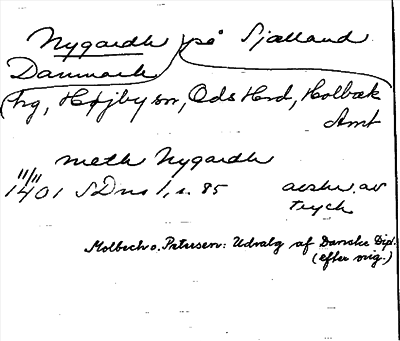 Nygardh på Sjælland
Danmark
(hg, Højby sn, Ods Hrd, Holbæk
Amt
meth Nygardh
11/11
1401 SDns 1, s. 85 avskr. av
tryck
Molbech o. Petersen: Udvalg af Danske Dipl.
(efter orig.)